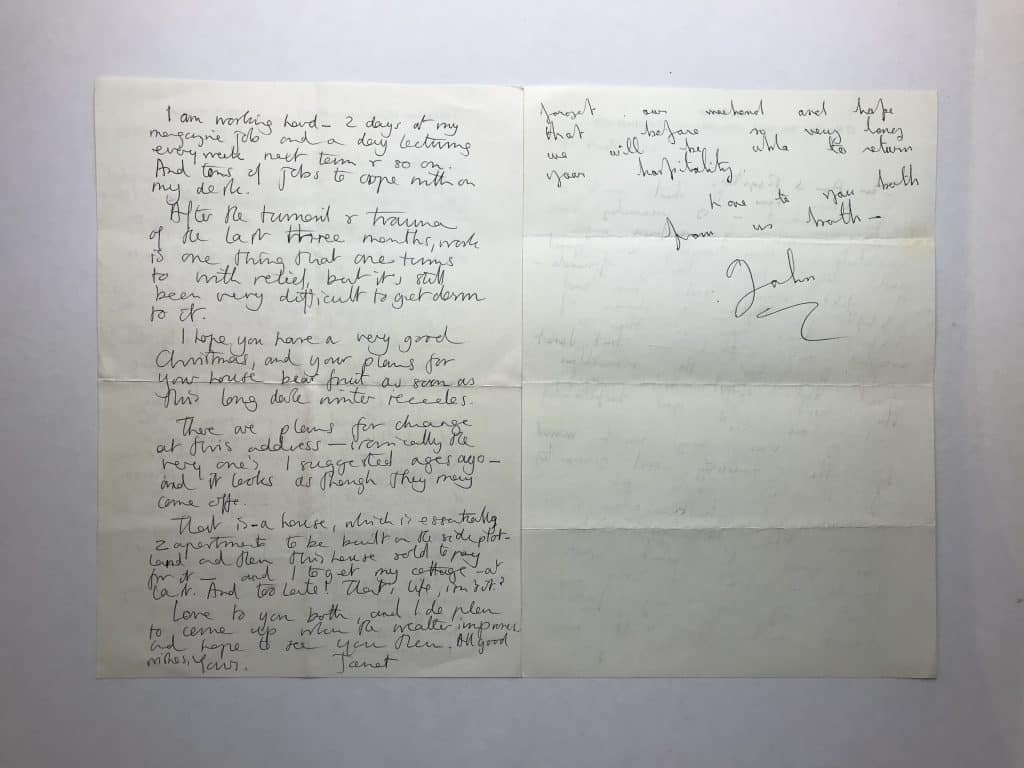 I am working hard – 2 days at my
magazine job and a day lecturing
every week next term & so on.
And tons of jobs to cope with on
my desk.
After the turmoil & trauma
of the last three months, work
is one thing that one turns
to with relief, but it's still
been very difficult to get down
to it.
I hope you have a very good
Christmas, and your plans for
your house bear fruit as soon as
this long dark winter recedes.
There are plans for change
at this address – ironically the
very ones I suggested ages ago –
and it looks as though they may
come off.
That is – a house, which is essentially
2 apartments to be built on the side plot –
land and then this house sold to pay
for it – and I to get my cottage – at
last. And too late! That's life, isn't it?
Love to you both, and I do plan
to come up when the weather improves
and hope to see you then. All good
wishes, Yours. Janet
forget our weekend and hope
that before so very long
we will be able to return
your hospitality.
Love to you both
from us both –
John